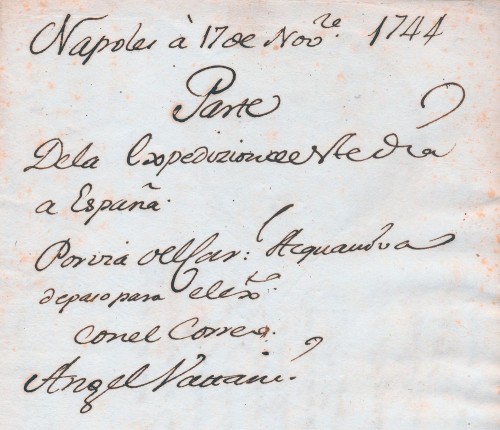 Napoles à 17 de Novre 1744
Parte
Dela Expedizion de
a España.
Por via del Car: Acquaviva
de paso para el
con el Correo.
Angel